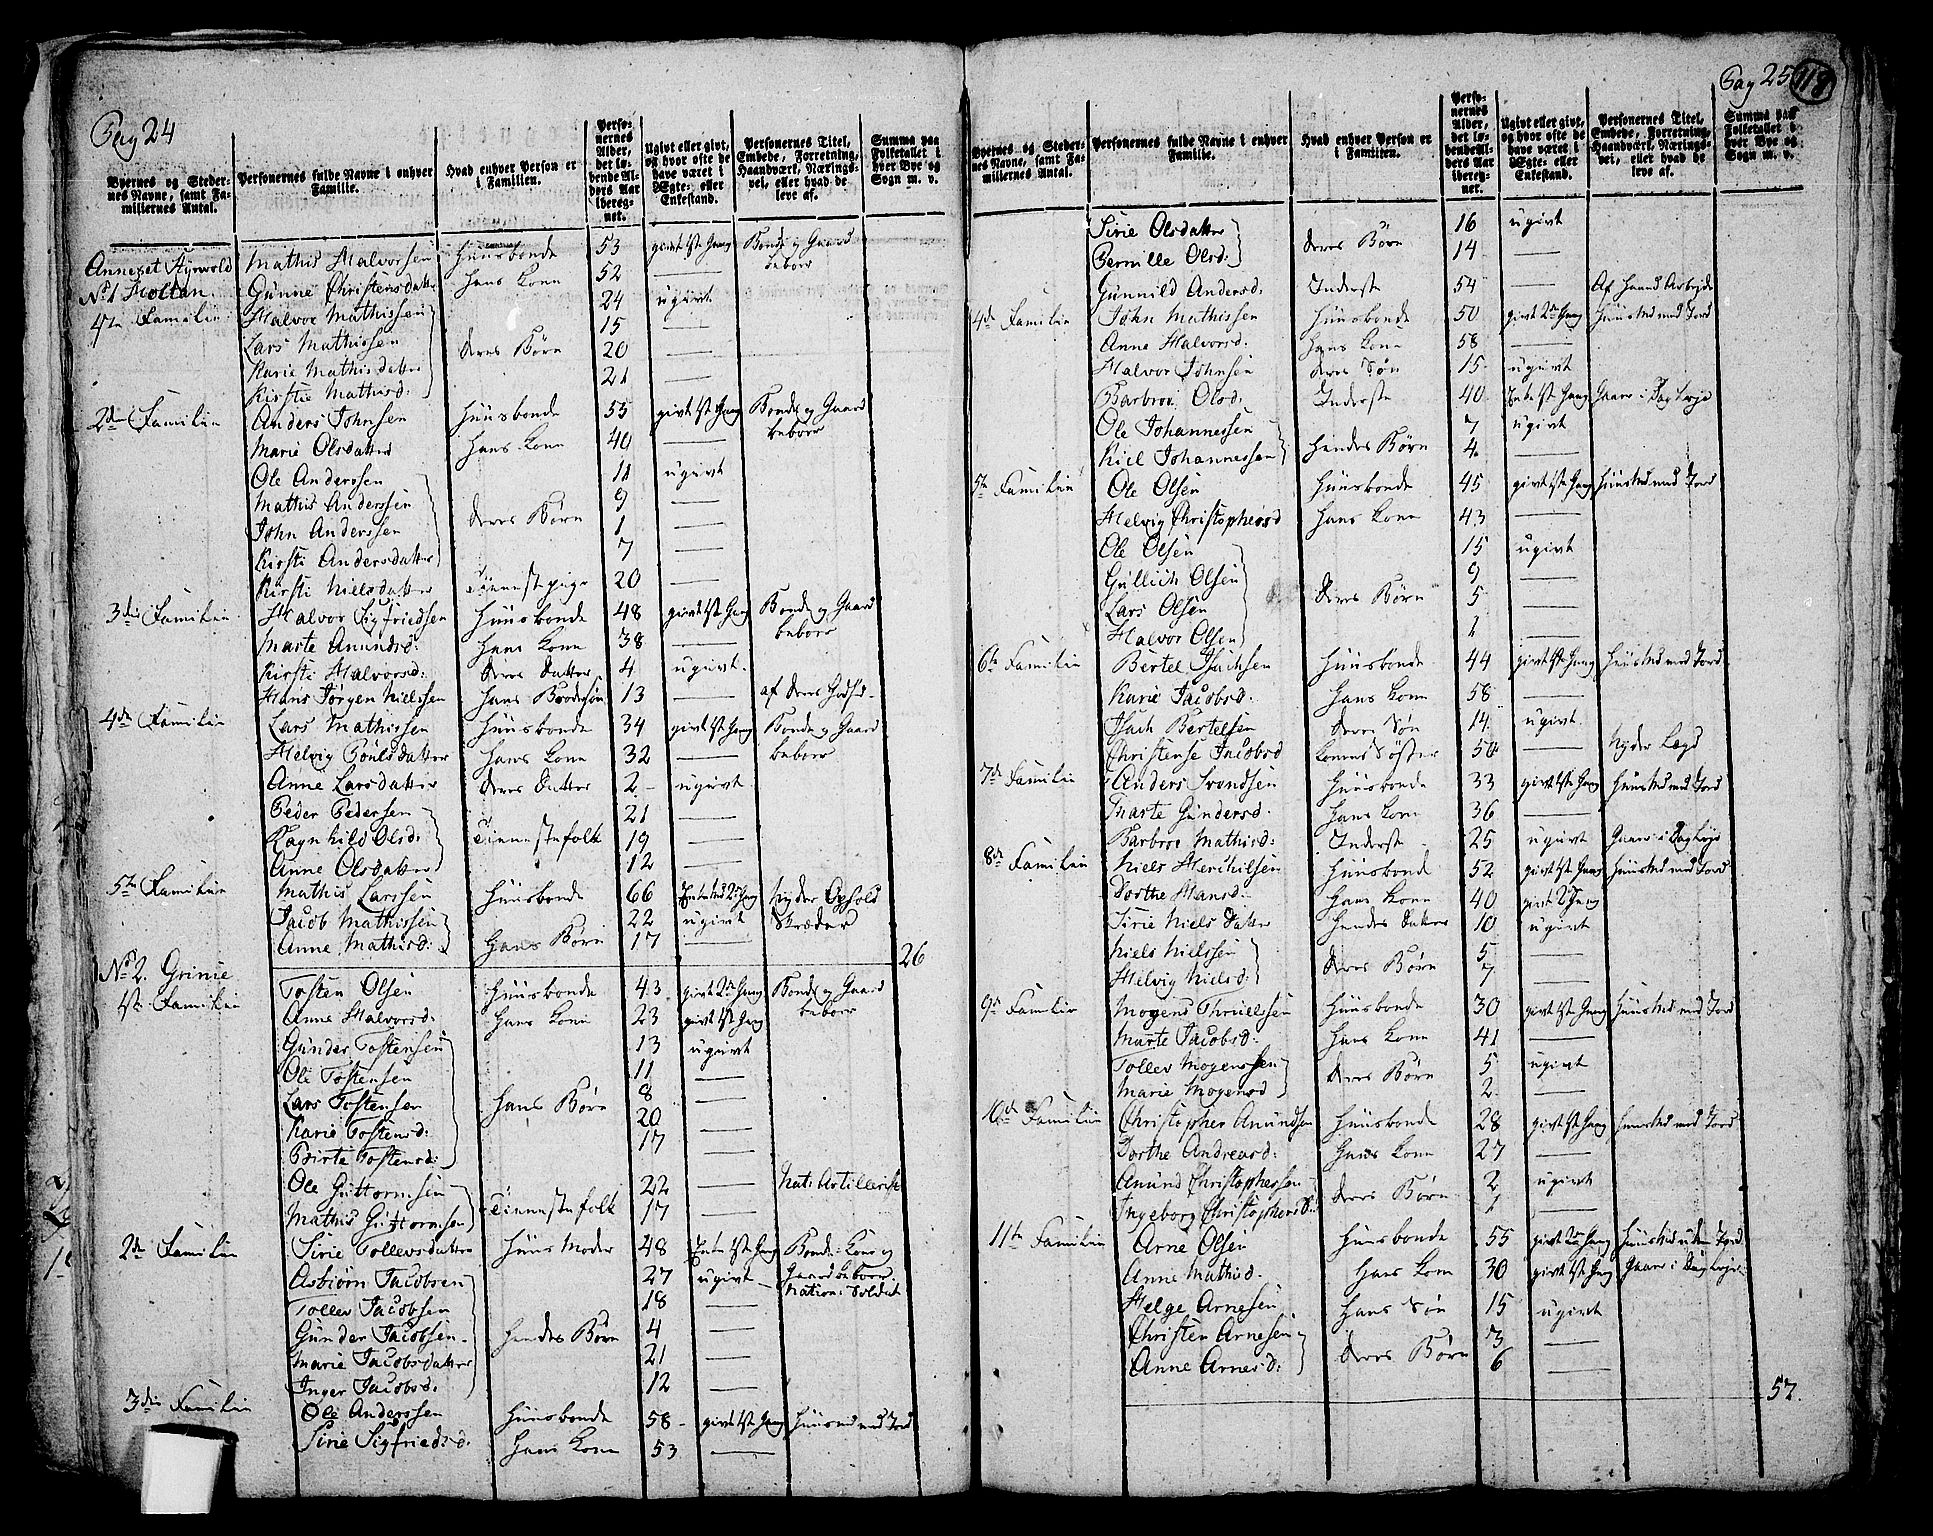 Pag 24
Byernes og Stedernes Navne, samt Familiernes Antal. | Personernes fulde Navne i enhver Familie. | Hvad enhver Person er i Familien. | Personernes Alder, det løbende Alders Aar iberegnet. | Ugivt eller givt, og hvor ofte de have været i Egte- eller Enkestand. | Personernes Titel, Embede, Forretning, Haandværk, Næringsvei, eller hvad de leve af. | Summa paa Folketallet i hver Bye og Sogn m. v.
Annexet | Mathis Halvorsen | Huusbonde | 53 | givt 1st Gang | Bonde og Gaard beboer
No 1 Holtan | Gunne Christensdatter | Hans Kone | 52 | —
1ste Familie | Halvor Mathissen | 24 | ugivt
Lars Mathissen | 15 | —
Karie Mathisdatter | Deres Børn | 20 | —
Kirstie Mathisd: | 21 | —
2den Familie | Anders Johnsen | Huusbonde | 55 | givt 1st Gang | Bonde og Gaard beboer
Marie Olsdatter | Hans Kone | 40 | —
Ole Anderssen | 11 | ugivt
Mathis Anderssen | 9 | —
John Anderssen | Deres Børn | 1 | —
Kirsti Andersdatter | 7 | —
Kirsti Nielsdatter | Tienestepige | 20 | —
3die Familie | Halvor Sigfriedsen | Huusbonde | 48 | givt 1st Gang | Bonde og Gaard beboer
Marte Amundsd: | Hans Kone | 38 | —
Kirsti Halvorsd: | Deres Datter | 4 | ugivt
Hans Jørgen Nielssen | Hans Brodersøn | 13 | — | af deres Godhed
4de Familie | Lars Mathissen | Huusbonde | 34 | givt 1st Gang | Bonde og Gaard beboer
Helvig Poulsdatter | Hans Kone | 32 | —
Anne Larsdatter | Deres Datter | 2 | ugivt
Peder Pedersen | 21 | —
Ragnhild Olsd: | Tienestefolk | 19 | —
Anne Olsdatter | 12 | —
5te Familie | Mathis Larssen | Huusbonde | 66 | Enkemd 2den Gang | Nyder Ophold
Jacob Mathissen | 22 | ugivt | Skræder
Anne Mathisd: | Hans Børn | 17 | —
26
No 2. Grinie
1ste Familie | Tosten Olsen | Huusbonde | 43 | givt 2den Gang | Bonde og Gaard beboer
Anne Halvorsd: | Hans Kone | 23 | givt 1st Gang
Gunder Tostensen | 13 | ugivt
Ole Tostensen | 11 | —
Lars Tostensen | Hans Børn | 8 | —
Karie Tostensd: | 20 | —
Birte Tostensd: | 17 | —
Ole Guttormsen | 22 | — | Nati: Artillerist
Mathis Guttormsen | Tienestefolk | 17 | —
2den Familie | Sirie Tollevsdatter | Huus Moder | 48 | Enke 1st Gang | Bonde Kone og Gaardbeboer
Asbiørn Jacobsen | 27 | ugivt | Nation: Soldat
Tollev Jacobsen | 18 | —
Gunder Jacobsen | Hendes Børn | 4 | —
Marie Jacobsdatter | 21 | —
Inger Jacobsd: | 12 | —
3die Familie | Ole Anderssen | Huusbonde | 58 | givt 1st Gang | Huusmd med Jord
Sirie Sigfriedsd. | Hans Kone | 53 | —
Pag 25
118
Byernes og Stedernes Navne, samt Familiernes Antal. | Personernes fulde Navne i enhver Familie. | Hvad enhver Person er i Familien. | Personernes Alder, det løbende Alders Aar iberegnet. | Ugivt eller givt, og hvor ofte de have været i Egte- eller Enkestand. | Personernes Titel, Embede, Forretning, Haandværk, Næringsvei, eller hvad de leve af. | Summa paa Folketallet i hver Bye og Sogn m. v.
Sirie Olsdatter | 16 | ugivt
Pernille Olsd: | Deres Børn | 14 | —
Gunnild Andersd: | Inderste | 54 | — | Af Haand Arbejde
4de Familie | John Mathissen | Huusbonde | 50 | givt 2den Gang | Huusmd med Jord
Anne Halvorsd: | Hans Kone | 58 | —
Halvor Johnsen | Deres Søn | 15 | ugivt
Barbroe Olsd: | Inderste | 40 | Enke 1st Gang | Gaaer i Dag Leje
Ole Johannessen | 7 | ugivt
Kiil Johannessen | Hendes Børn | 4 | —
5te Familie | Ole Olsen | Huusbonde | 45 | givt 1ste Gang | Huusmd med Jord
Helvig Christophersd | Hans Kone | 43 | —
Ole Olsen | 15 | ugivt
Gullich Olsen | 9 | —
Lars Olsen | Deres Børn | 5 | —
Halvor Olsen | 1 | —
6te Familie | Bertel Isachsen | Huusbonde | 44 | givt 1ste Gang | Huusmd med Jord
Karie Jacobsd: | Hans Kone | 58 | —
Isach Bertelsen | Deres Søn | 14 | ugivt
Christense Jacobsd | Konens Søster | 50 | — | Nyder Lægd
7de Familie | Anders Svendsen | Huusbonde | 33 | givt 1ste Gang | Huusmd med Jord
Marte Gundersd. | Hans Kone | 36 | —
Barbroe Mathisd: | Inderste | 25 | ugivt | Gaaer i Dag Leje
8de Familie | Niels | Huusbond | 52 | givt 1ste Gang | Huusmd med Jord
Dorthe Hansd: | Hans Kone | 40 | givt 2 Gang
Sirie Niels Datter | Hendes Datter | 10 | ugivt
Niels Nielssen | 5 | —
Helvig Nielsd: | Deres Børn | 7 | —
9de Familie | Mogens Thruelssen | Huusbonde | 30 | givt 1ste Gang | Huusmd med Jord
Marte Jacobsd: | Hans Kone | 41 | —
Tollev Mogenssen | 5 | ugivt
Marie Mogensd | Deres Børn | 2 | —
10de Familie | Christopher Amundsen | Huusbonde | 28 | givt 1st Gang | Huusmd med Jord
Dorthe Andreasd: | Hans Kone | 27 | —
Amund Christophersen | 2 | ugivt
Ingeborg Christophersd: | Deres Børn | 1 | —
11te Familie | Arne Olsen | Huusbonde | 55 | givt 2den Gang | Huusmd uden Jord
Anne Mathisd. | Hans Kone | 30 | givt 1st Gang | Gaaer i Dag Leje
Helge Arnesen | Hans Søn | 15 | ugivt
Christen Arnesen | 3 | —
Anne Arnesd: | Deres Børn | 6 | —
57.